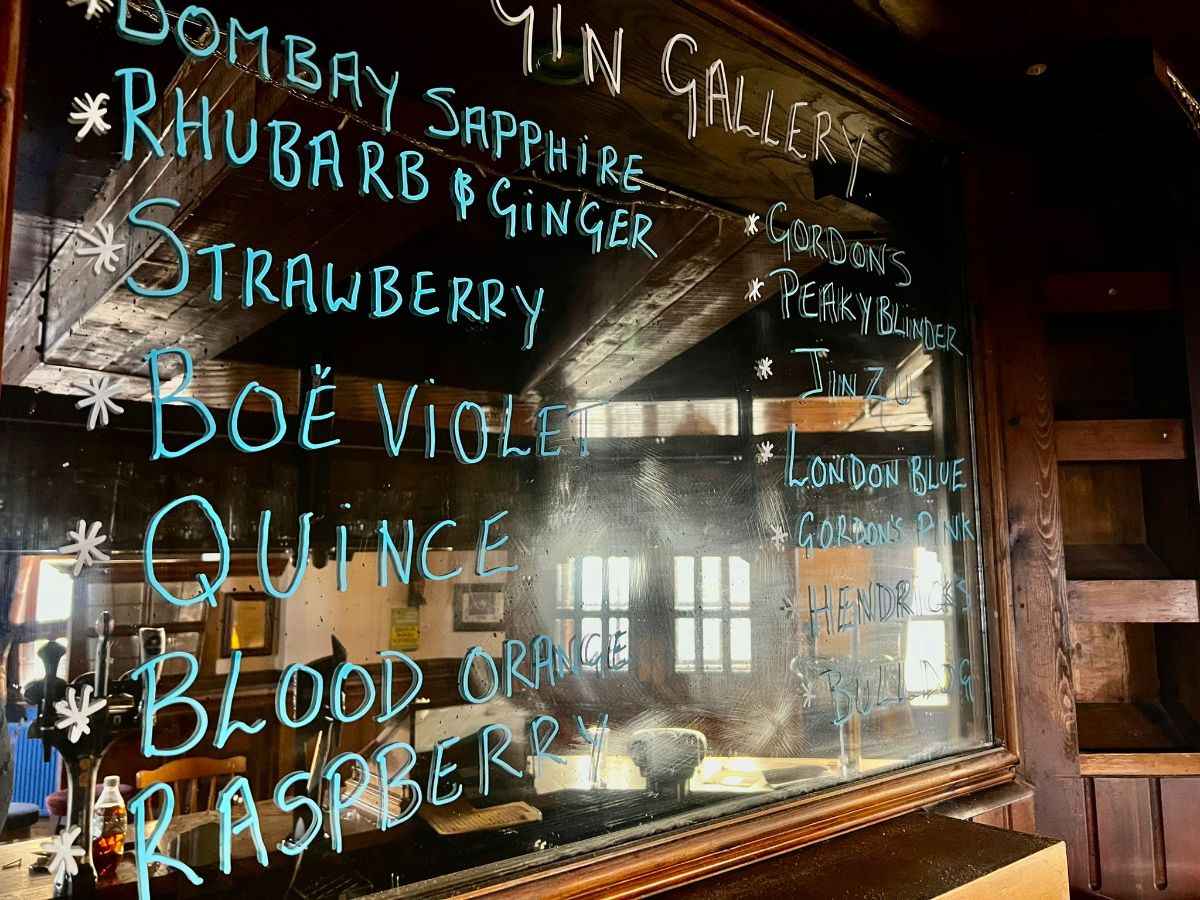 GIN GALLERY
* BOMBAY SAPPHIRE
* RHUBARB & GINGER
* STRAWBERRY
* BOË VIOLET
* QUINCE
* BLOOD ORANGE
* RASPBERRY
* GORDON'S
* PEAKY BLINDER
* JINZU
* LONDON BLUE
* GORDON'S PINK
* HENDRICKS
* BULLDOG